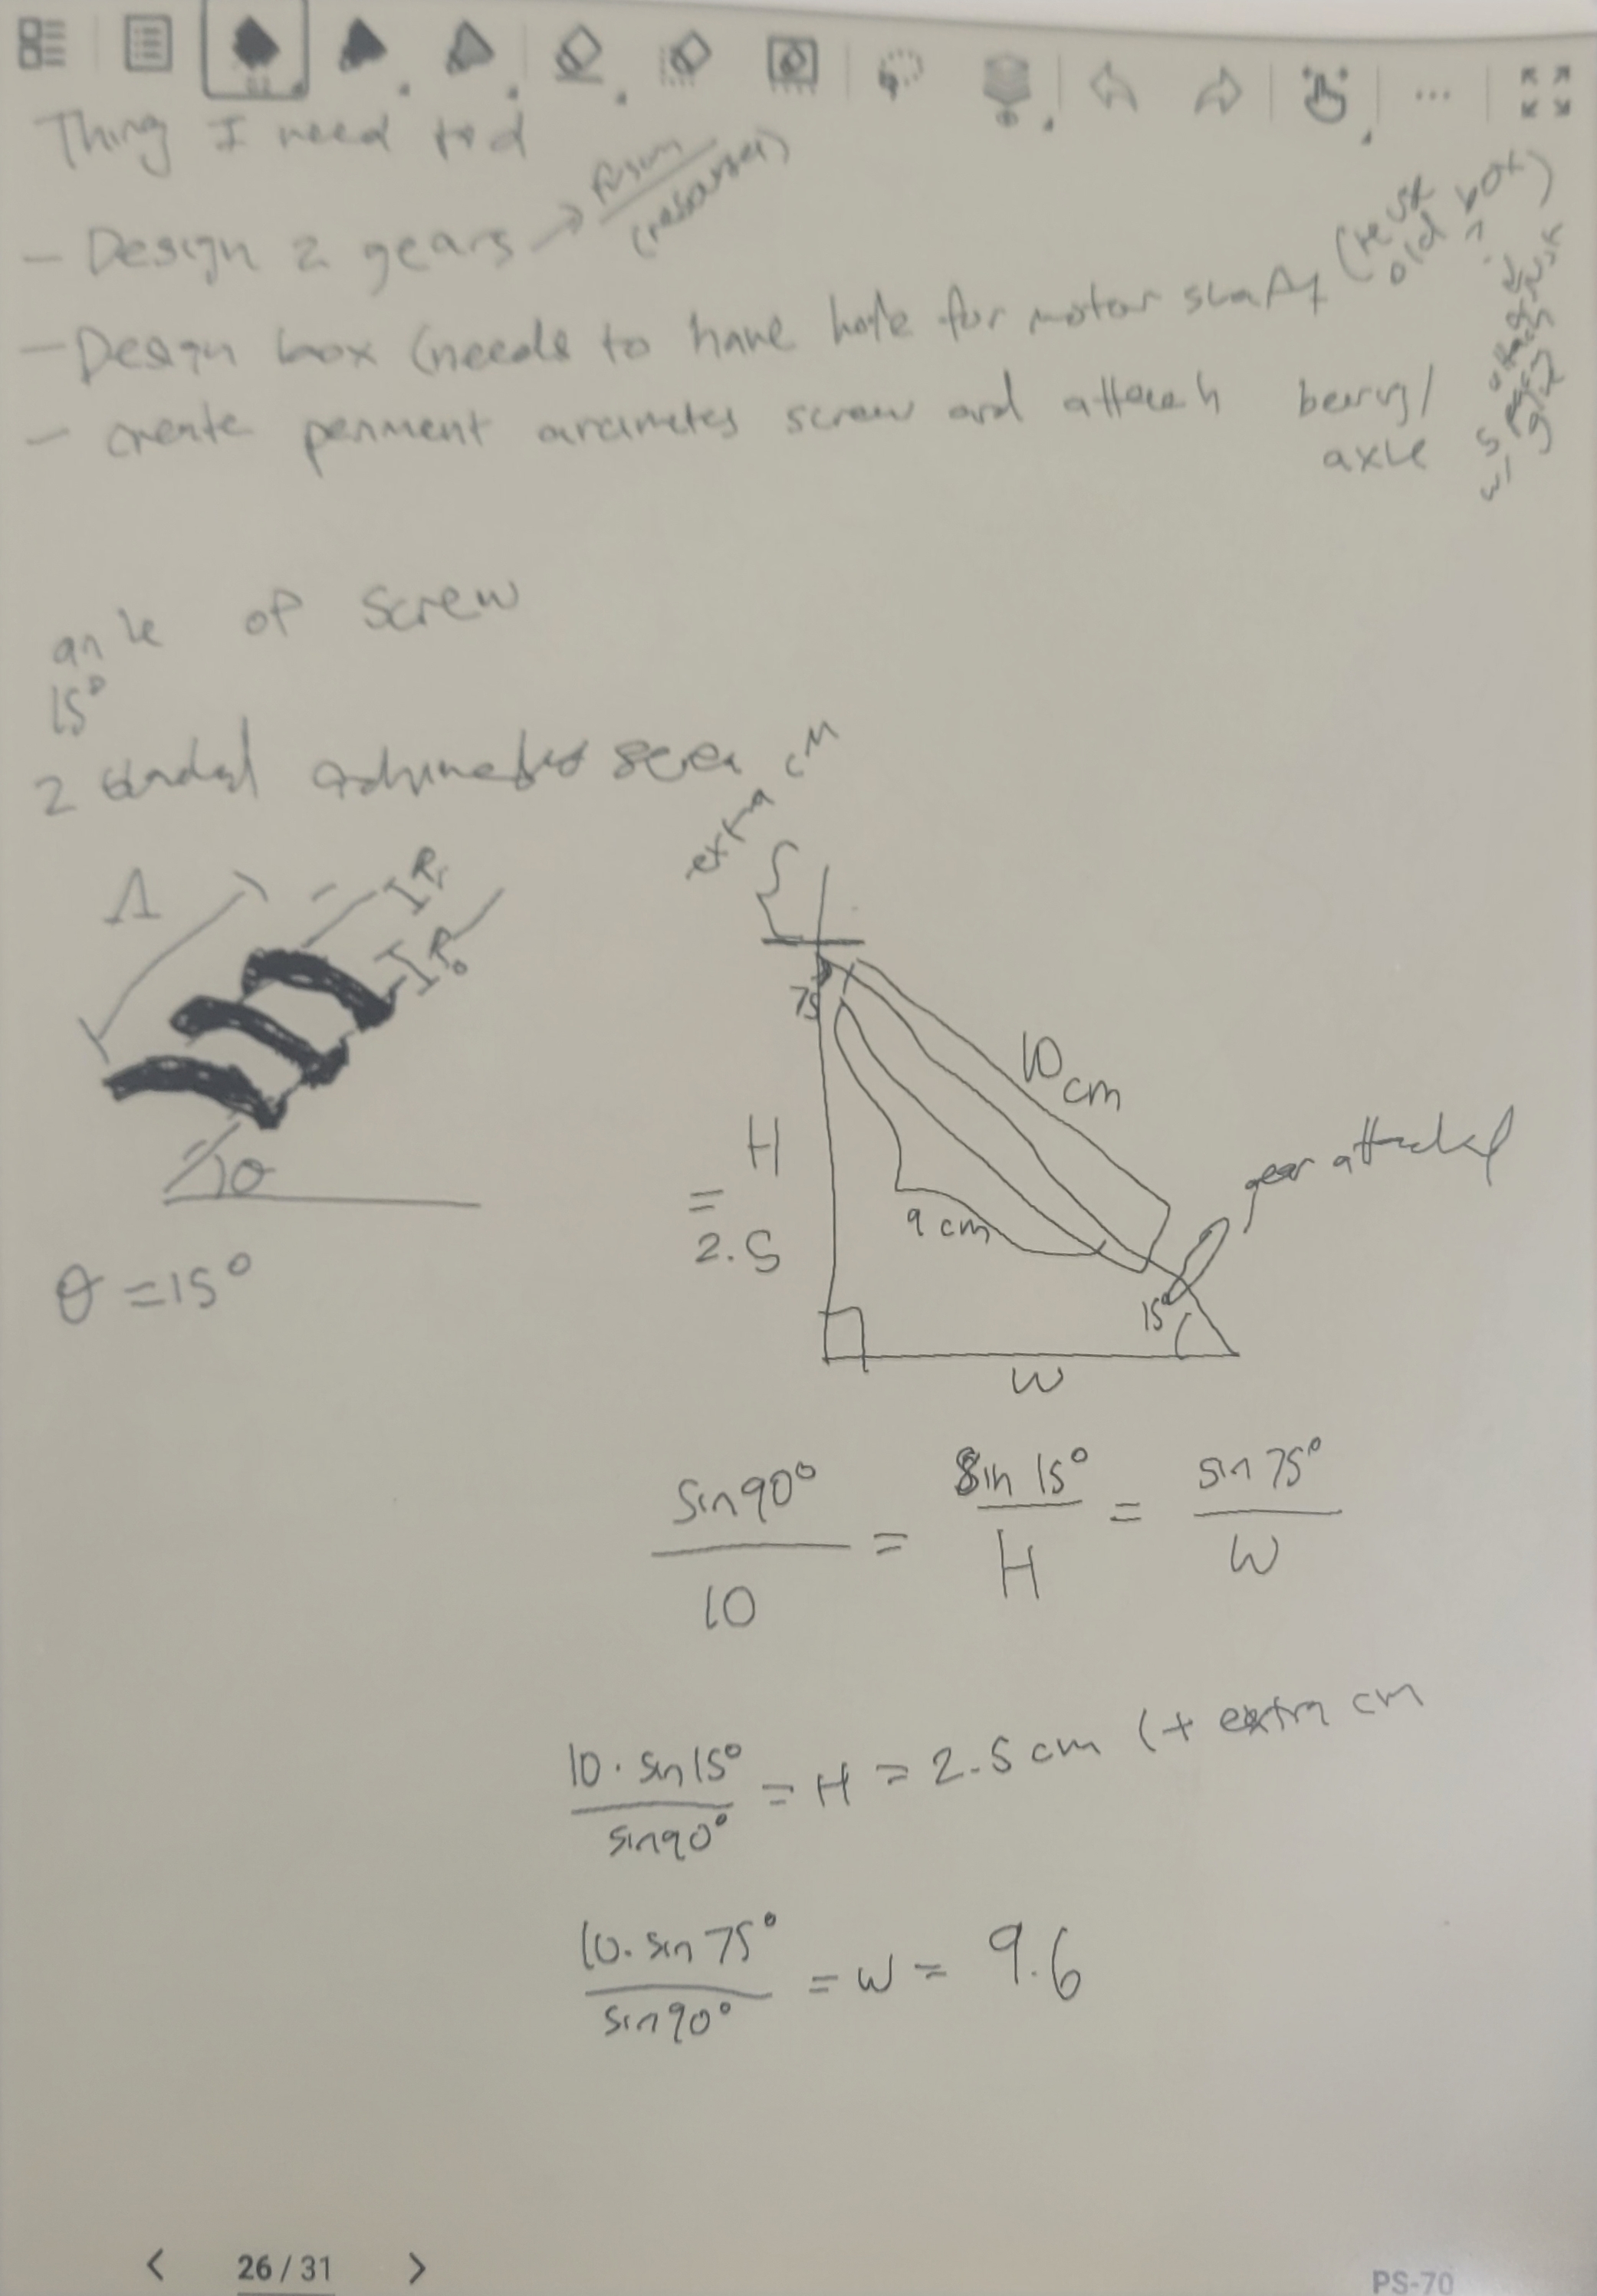 Thing I need to d
- Design 2 gears → (research)
- Design box (needs to have hole for motor shaft (reuse old box)
- create penment arcimetes screw and attach bearing/
axle
ankle of screw
15°
2
extra cm
Λ
IRi
IRo
θ
θ = 15°
75
10 cm
H
=
2.5
9 cm
gear attached
15°
W
sin 90° / 10 = sin 15° / H = sin 75° / W
10 · sin 15° / sin 90° = H = 2.5 cm (+ extra cm
10 · sin 75° / sin 90° = W = 9.6
< 26 / 31 >
PS-70